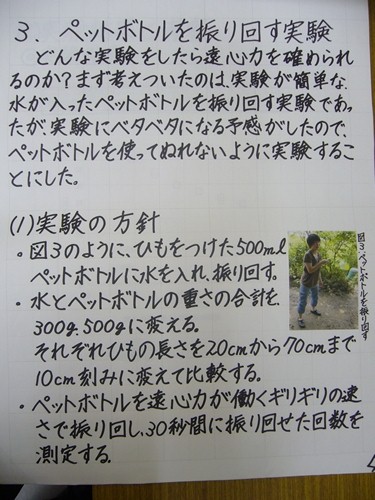 3．ペットボトルを振り回す実験
どんな実験をしたら遠心力を確められ
るのか?まず考えついたのは、実験が簡単な、
水が入ったペットボトルを振り回す実験であっ
たが実験にベタベタになる予感がしたので、
ペットボトルを使ってぬれないように実験するこ
とにした。
(1)実験の方針
・図3のように、ひもをつけた500ml
ペットボトルに水を入れ、振り回す。
・水とペットボトルの重さの合計を
300g、500gに変える。
それぞれひもの長さを20cmから70cmまで
10cm刻みに変えて比較する。
・ペットボトルを遠心力が働くギリギリの速
さで振り回し、30秒間に振り回せた回数を
測定する。
図3:ペットボトルを振り回す